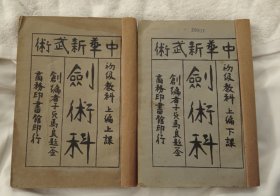 中華新武術
初級教科 上編上課
劍術科
創編者子貞馬良題簽
商務印書館印行
中華新武術
初級教科 上編下課
劍術科
創編者子貞馬良題簽
商務印書館印行